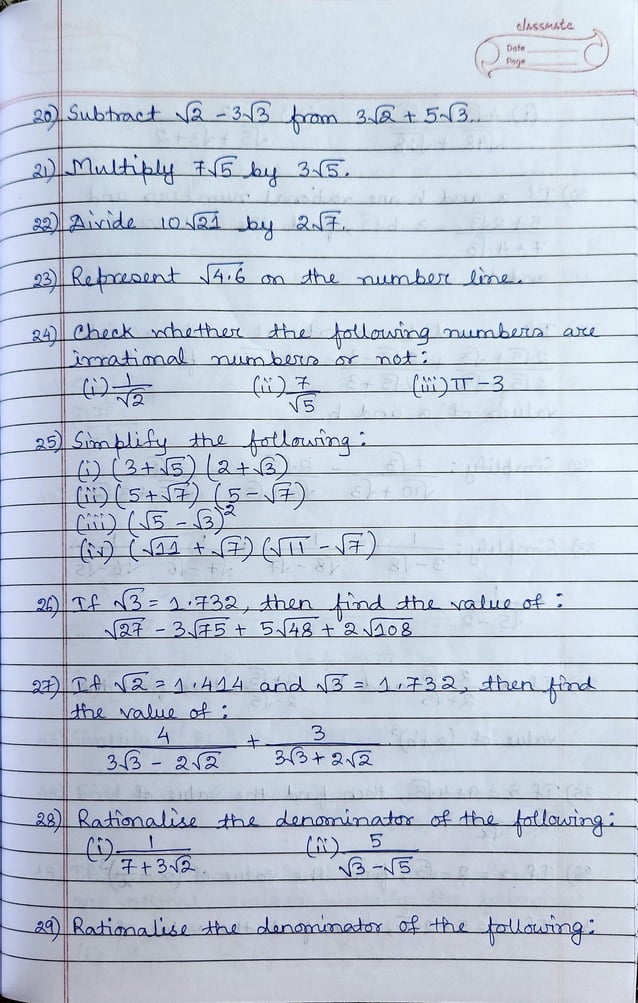 classmate
Date
Page
20) Subtract √2 - 3√3 from 3√2 + 5√3.
21) Multiply 7√5 by 3√5.
22) Divide 10√21 by 2√7.
23) Represent √4.6 on the number line.
24) Check whether the following numbers are
irrational numbers or not:
(i) 1/√2 (ii) 7/√5 (iii) π - 3
25) Simplify the following:
(i) (3 + √5) (2 + √3)
(ii) (5 + √7) (5 - √7)
(iii) (√5 - √3)²
(iv) (√11 + √7) (√11 - √7)
26) If √3 = 1.732, then find the value of :
√27 - 3√75 + 5√48 + 2√108
27) If √2 = 1.414 and √3 = 1.732, then find
the value of :
4/(3√3 - 2√2) + 3/(3√3 + 2√2)
28) Rationalise the denominator of the following:
(i) 1/(7 + 3√2) (ii) 5/(√3 - √5)
29) Rationalise the denominator of the following: